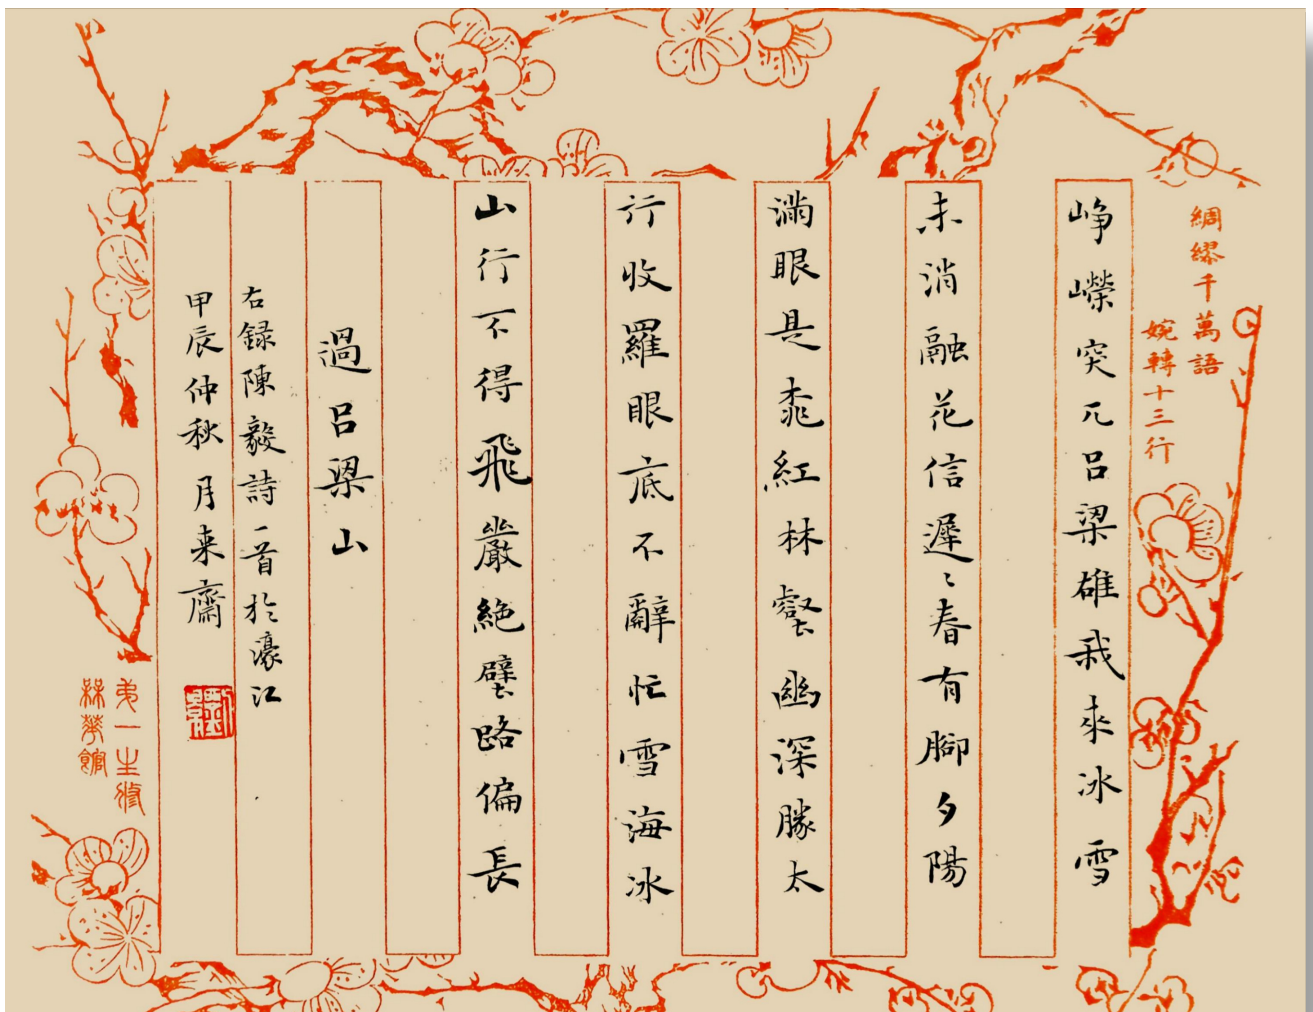 綢繆千萬語
婉轉十三行
崢嶸突兀呂梁雄我來冰雪
未消融花信遲〻春有腳夕陽
滿眼是桃紅林壑幽深勝太
行收羅眼底不辭忙雪海冰
山行不得飛巖絕壁路偏長
過呂梁山
右録陳毅詩一首於濠江
甲辰仲秋月来齋
弟一生修
楳華館